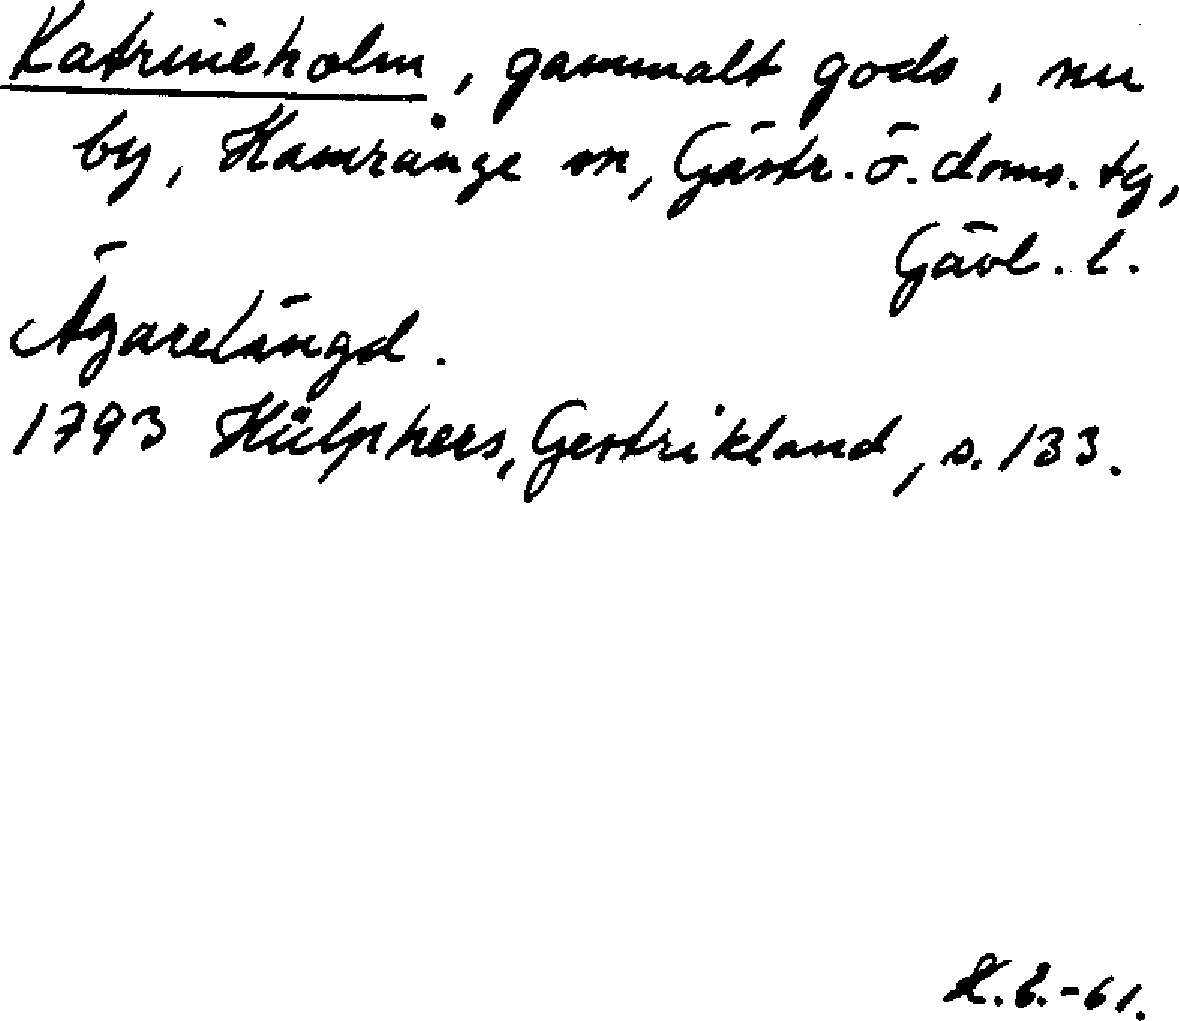 Katrineholm, gammalt gods, nu
by, Hamrånge sn, Gästr. ö. doms. tg,
Gävl. l.
Ägarelängd.
1793 Hülphers, Gestrikland, s. 133.
H. B. -61.